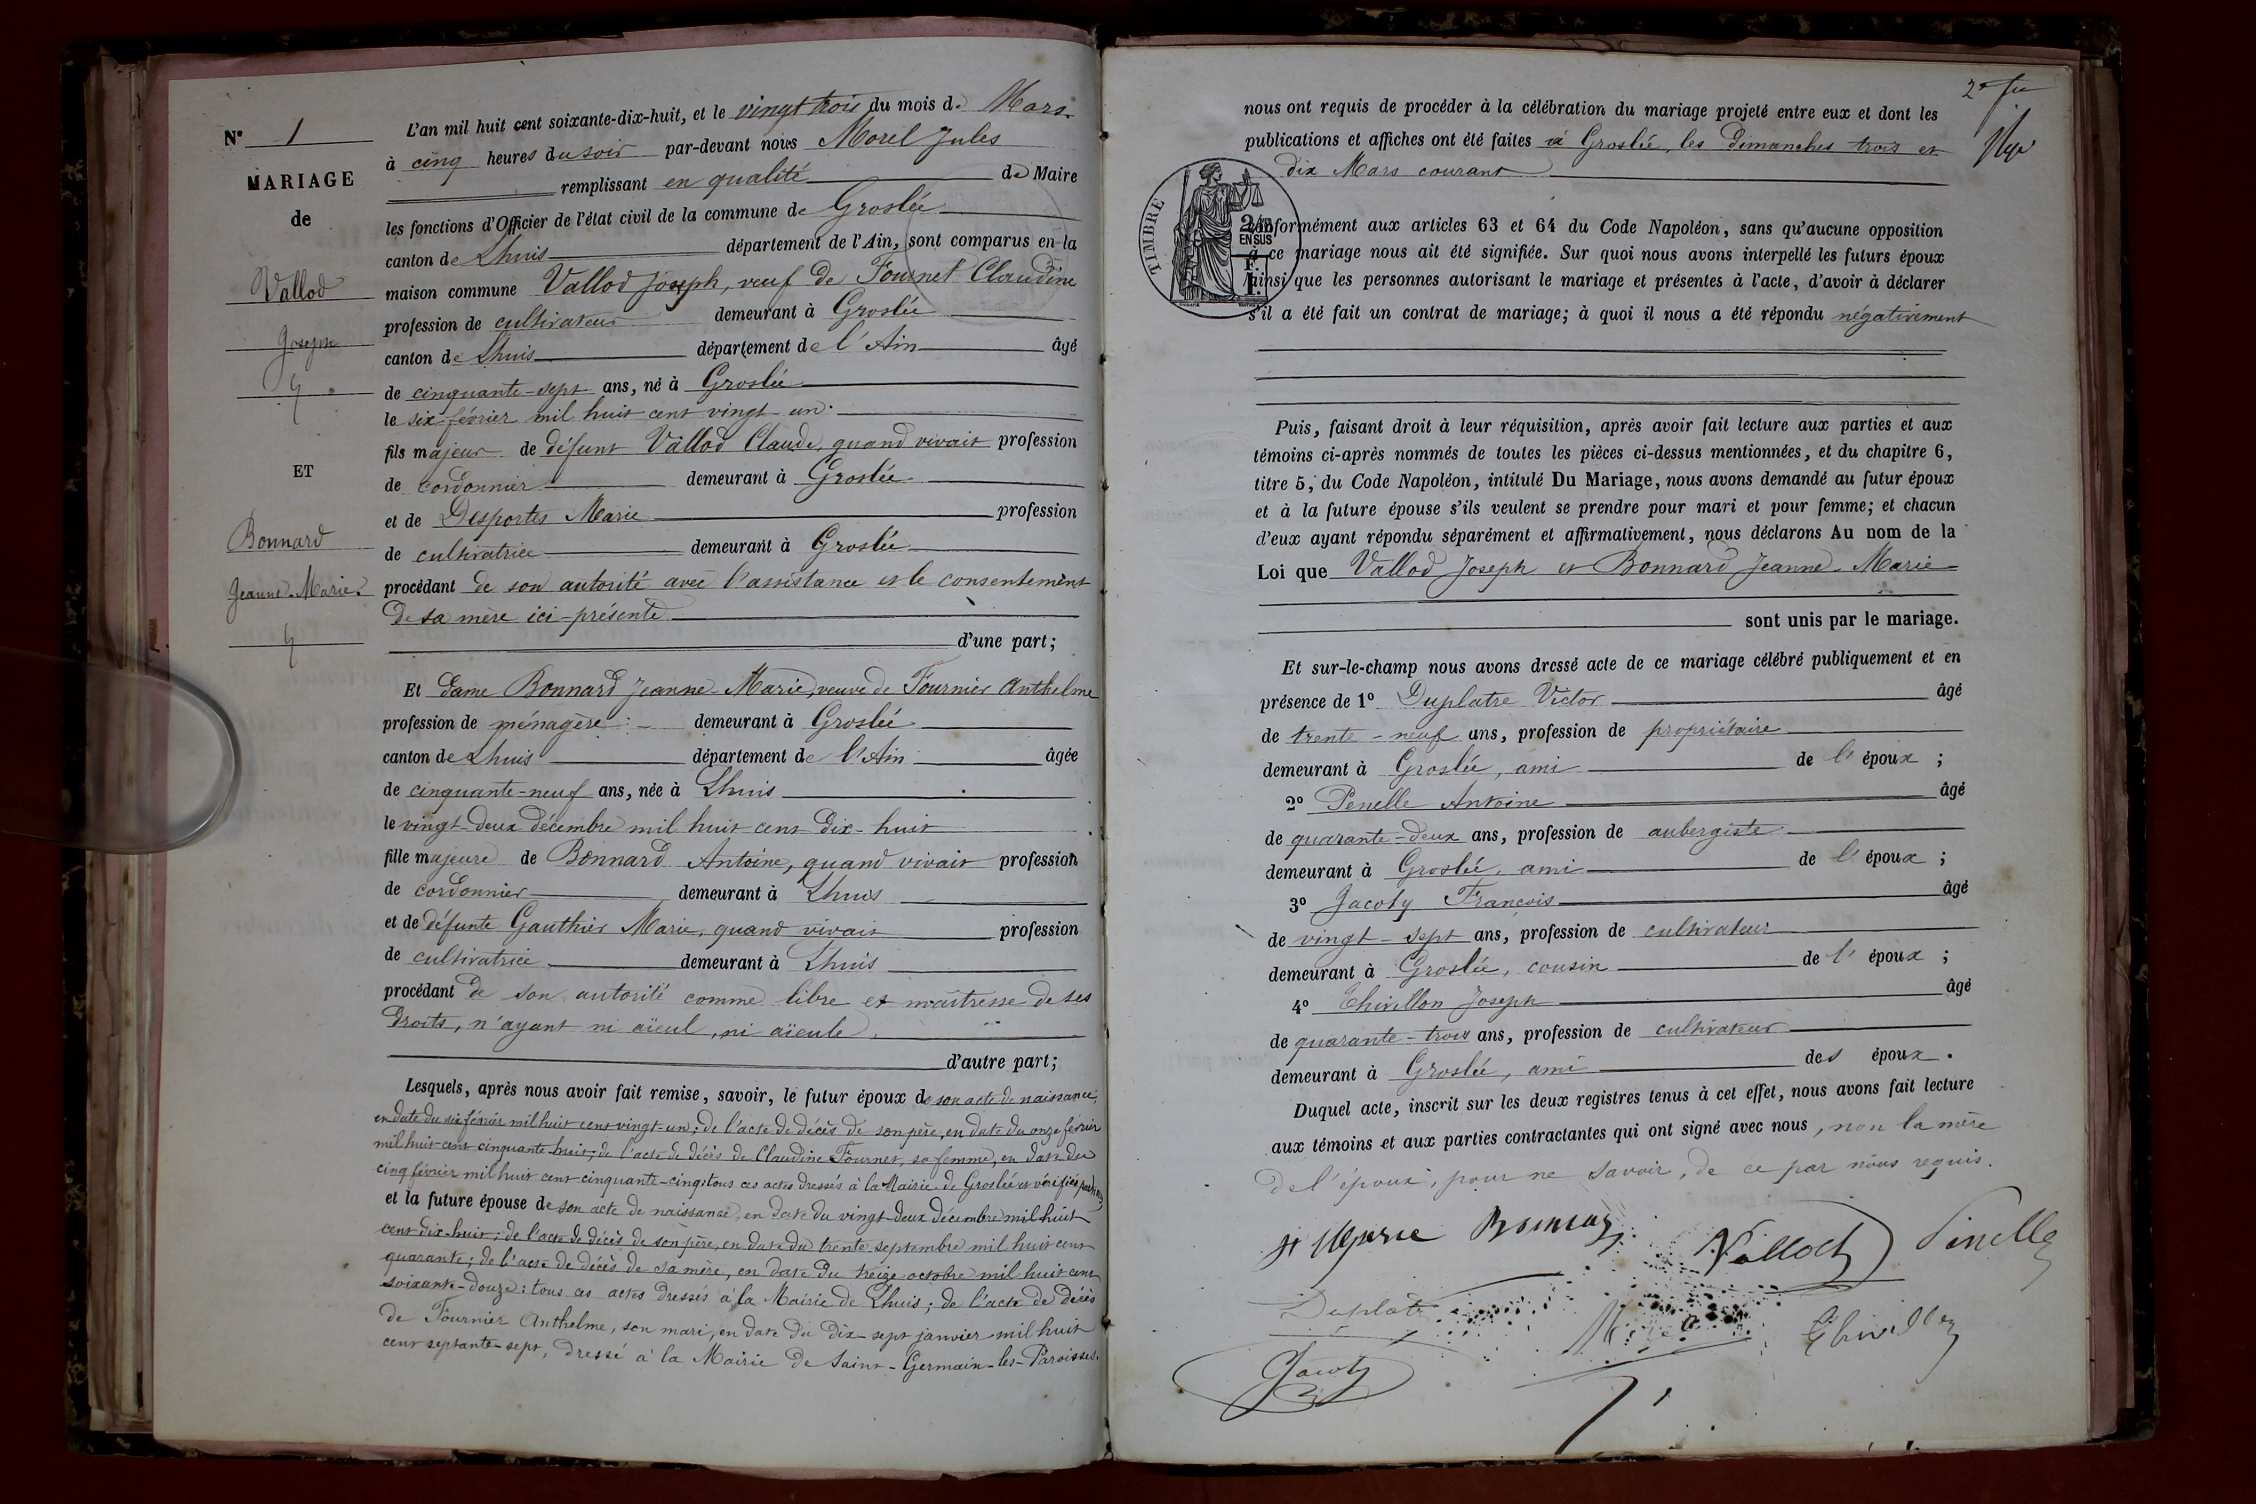 N° 1
MARIAGE
de
Vallod
Joseph
ET
Bonnard
Jeanne-Marie
L'an mil huit cent soixante-dix-huit, et le vingt trois du mois de Mars
à cinq heures du soir par-devant nous Morel Jules
remplissant en qualité de Maire
les fonctions d'Officier de l'état civil de la commune de Groslée
canton de Lhuis département de l'Ain, sont comparus en la
maison commune Vallod Joseph, veuf de Fournet Claudine
profession de cultivateur demeurant à Groslée
canton de Lhuis département de l'Ain âgé
de cinquante-sept ans, né à Groslée
le six février mil huit cent vingt un
fils majeur de défunt Vallod Claude, quand vivait profession
de cordonnier demeurant à Groslée
et de Desportes Marie profession
de cultivatrice demeurant à Groslée
procédant de son autorité avec l'assistance et le consentement
de sa mère ici-présente
d'une part;
Et dame Bonnard Jeanne-Marie, veuve de Fournier Anthelme
profession de ménagère demeurant à Groslée
canton de Lhuis département de l'Ain âgée
de cinquante-neuf ans, née à Lhuis
le vingt-deux décembre mil huit cent dix-huit
fille majeure de Bonnard Antoine, quand vivait profession
de cordonnier demeurant à Lhuis
et de défunte Gauthier Marie, quand vivait profession
de cultivatrice demeurant à Lhuis
procédant de son autorité comme libre et maîtresse de ses
droits, n'ayant ni aïeul, ni aïeule.
d'autre part;
Lesquels, après nous avoir fait remise, savoir, le futur époux de son acte de naissance,
en date du six février mil huit cent vingt-un; de l'acte de décès de son père, en date du onze février
mil huit cent cinquante-huit; de l'acte de décès de Claudine Fournet, sa femme, en date du
cinq février mil huit cent cinquante-cinq: tous ces actes dressés à la Mairie de Groslée et vérifiés par nous
et la future épouse de son acte de naissance, en date du vingt-deux décembre mil huit
cent dix-huit; de l'acte de décès de son père, en date du trente septembre mil huit cent
quarante; de l'acte de décès de sa mère, en date du treize octobre mil huit cent
soixante-douze: tous ces actes dressés à la Mairie de Lhuis; de l'acte de décès
de Fournier Anthelme, son mari, en date du dix-sept janvier mil huit
cent septante-sept, dressé à la Mairie de Saint-Germain-les-Paroisses.
nous ont requis de procéder à la célébration du mariage projeté entre eux et dont les
publications et affiches ont été faites à Groslée, les dimanches trois et
dix Mars courant
TIMBRE
EN SUS
conformément aux articles 63 et 64 du Code Napoléon, sans qu'aucune opposition
à ce mariage nous ait été signifiée. Sur quoi nous avons interpellé les futurs époux
ainsi que les personnes autorisant le mariage et présentes à l'acte, d'avoir à déclarer
s'il a été fait un contrat de mariage; à quoi il nous a été répondu négativement
Puis, faisant droit à leur réquisition, après avoir fait lecture aux parties et aux
témoins ci-après nommés de toutes les pièces ci-dessus mentionnées, et du chapitre 6,
titre 5, du Code Napoléon, intitulé Du Mariage, nous avons demandé au futur époux
et à la future épouse s'ils veulent se prendre pour mari et pour femme; et chacun
d'eux ayant répondu séparément et affirmativement, nous déclarons Au nom de la
Loi que Vallod Joseph et Bonnard Jeanne-Marie
sont unis par le mariage.
Et sur-le-champ nous avons dressé acte de ce mariage célébré publiquement et en
présence de 1° Duplatre Victor âgé
de trente-neuf ans, profession de propriétaire
demeurant à Groslée, ami de l'époux;
2° Penelle Antoine âgé
de quarante-deux ans, profession de aubergiste
demeurant à Groslée, ami de l'époux;
3° Jacoty François âgé
de vingt-sept ans, profession de cultivateur
demeurant à Groslée, cousin de l'époux;
4° Thivillon Joseph âgé
de quarante-trois ans, profession de cultivateur
demeurant à Groslée, ami des époux.
Duquel acte, inscrit sur les deux registres tenus à cet effet, nous avons fait lecture
aux témoins et aux parties contractantes qui ont signé avec nous, non la mère
de l'époux, pour ne savoir, de ce par nous requis.
Vallod
Duplatre
Thivillon
Jacoty